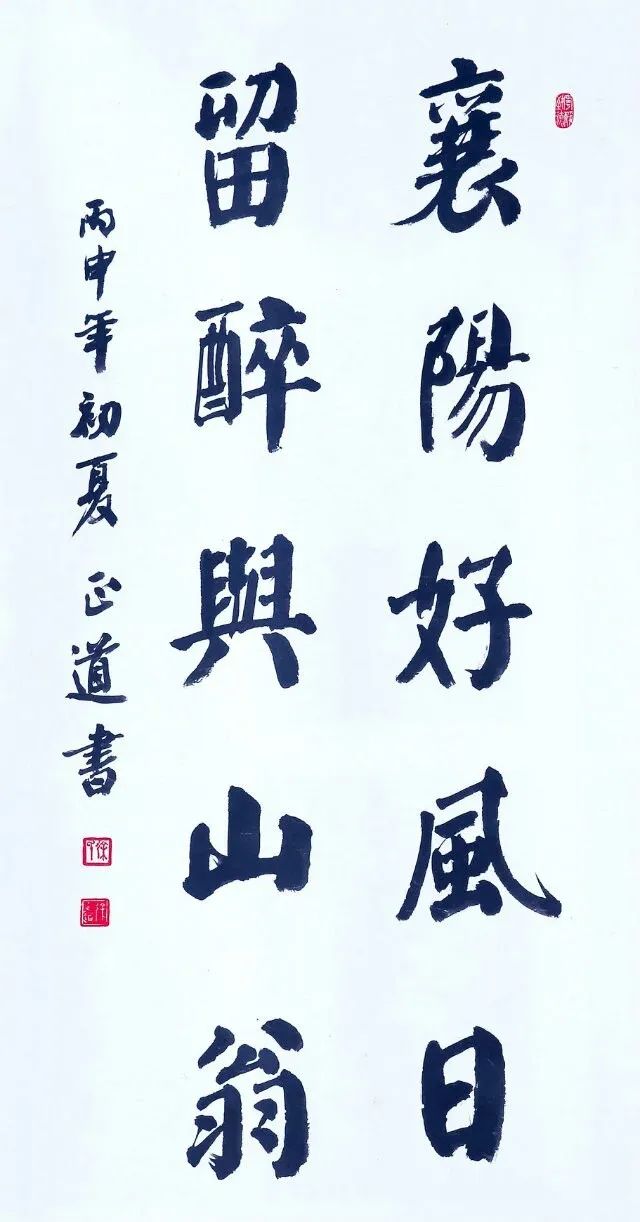 襄陽好風日
留醉與山翁
丙申年初夏正道書